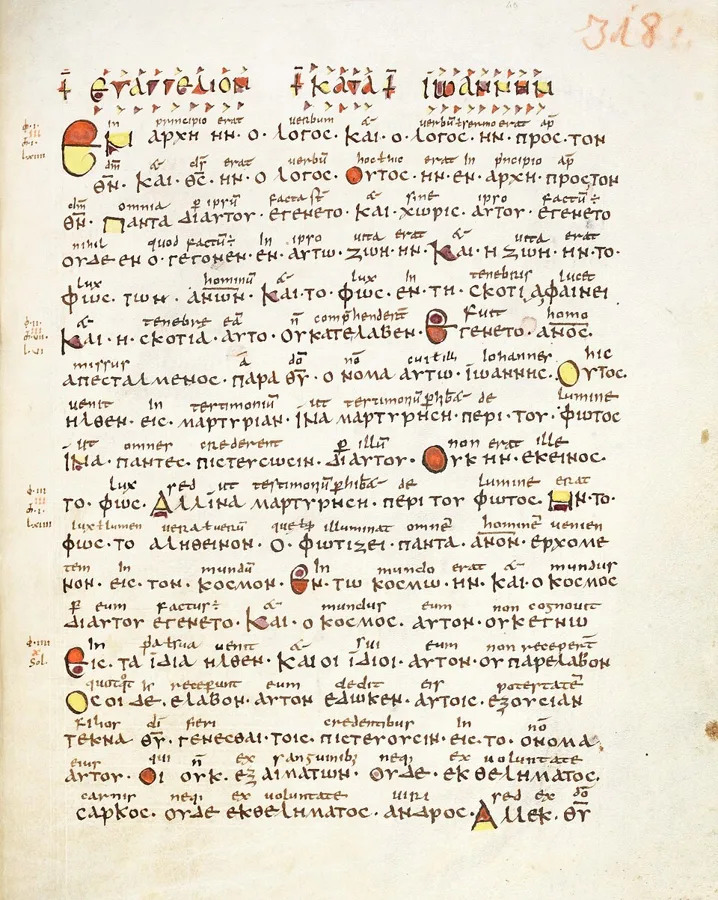 318.
+ ЄΥΑΓΓЄΛΙΟΝ + ΚΑΤΑ + ΙΩΑΝΝΗΝ
in principio erat verbum verbū erat ap̄
ЄΝ ΑΡΧΗ ΗΝ· Ο· ΛΟΓΟС· ΚΑΙ· Ο·ΛΟΓΟС· ΗΝ· ΠΡΟС·ΤΟΝ
dm̄ & ds̄ erat verbū hoc hic erat in principio ap̄
Θ̅Ν̅· ΚΑΙ· Θ̅С̅· ΗΝ· Ο ΛΟΓΟС· ΟΥΤΟС· ΗΝ· ЄΝ· ΑΡΧΗ· ΠΡΟСΤΟΝ
dm̄ omnia ꝑ ipsū facta st̄ & sine ipso factū ÷
Θ̅Ν̅· ΠΑΝΤΑ ΔΙΑΥΤΟΥ· ЄΓЄΝЄΤΟ· ΚΑΙ· ΧΩΡΙС· ΑΥΤΟΥ· ЄΓЄΝЄΤΟ
nihil quod factū÷ in ipso uita erat & uita erat
ΟΥΔЄ ЄΝ Ο·ΓЄΓΟΝЄΝ·ЄΝ· ΑΥΤΩ· ΖΩΗ· ΗΝ· ΚΑΙ·Η ΖΩΗ· ΗΝ·ΤΟ·
lux hominū & lux in tenebris lucet
ΦΩС· ΤΩΝ· Α̅Ν̅Ω̅Ν̅· ΚΑΙ·ΤΟ· ΦΩС· ЄΝ· ΤΗ· СΚΟΤΙΑ ΦΑΙΝЄΙ
& tenebre eā n̄ comphendert fuit homo
ΚΑΙ· Η· СΚΟΤΙΑ· ΑΥΤΟ· ΟΥΚΑΤЄΛΑΒЄΝ· ЄΓЄΝЄΤΟ· Α̅Ν̅Ο̅С̅·
missus ā dō nō cui iohannes hic
ΑΠЄСΤΑΛΜЄΝΟС· ΠΑΡΑ Θ̅Υ̅· Ο ΝΟΜΑ ΑΥΤΩ· ΙΩΑΝΝΗС· ΟΥΤΟС·
uenit in testimoniū ut testimoniū de lumine
ΗΛΘЄΝ· ЄΙС· ΜΑΡΤΥΡΙΑΝ· ΙΝΑ ΜΑΡΤΥΡΗСΗ· ΠЄΡΙ· ΤΟΥ· ΦΩΤΟС
ut omnes crederent ꝑ illū non erat ille
ΙΝΑ· ΠΑΝΤЄС· ΠΙСΤЄΥСΩСΙΝ· ΔΙΑΥΤΟΥ· ΟΥΚ ΗΝ· ЄΚЄΙΝΟС·
lux sed ut testimoniū de lumine erat
ΤΟ· ΦΩС· ΑΛΛΙΝΑ ΜΑΡΤΥΡΗСΗ· ΠЄΡΙ ΤΟΥ ΦΩΤΟС· ΗΝ·ΤΟ·
lux ł lumen uera ł uerū illuminat omnē hominē uenien
ΦΩС·ΤΟ ΑΛΗΘЄΙΝΟΝ· Ο· ΦΩΤΙΖЄΙ· ΠΑΝΤΑ· Α̅Ν̅Ο̅Ν̅· ЄΡΧΟΜЄ
tem in mundū in mundo erat & mundus
ΝΟΝ· ЄΙС· ΤΟΝ· ΚΟСΜΟΝ· ЄΝ· ΤΩ ΚΟСΜΩ· ΗΝ· ΚΑΙ·Ο ΚΟСΜΟС
ꝑ eum factus÷ & mundus eum non cognouit
ΔΙΑΥΤΟΥ ЄΓЄΝЄΤΟ· ΚΑΙ Ο ΚΟСΜΟС· ΑΥΤΟΝ·ΟΥΚЄΓΝΩ
in uenit & sui eum non receperūt
ЄΙС· ΤΑ ΙΔΙΑ ΗΛΘЄΝ· ΚΑΙ ΟΙ ΙΔΙΟΙ· ΑΥΤΟΝ·ΟΥ ΠΑΡЄΛΑΒΟΝ
receperunt eum dedit eis potestatē
ΟСΟΙ ΔЄ· ЄΛΑΒΟΝ· ΑΥΤΟΝ ЄΔΩΚЄΝ· ΑΥΤΟΙС· ЄΞΟΥСΙΑΝ
filios dī fieri credentibus in nō
ΤЄΚΝΑ Θ̅Υ̅· ΓЄΝЄСΘΑΙ·ΤΟΙС· ΠΙСΤЄΥΟΥСΙΝ· ЄΙС·ΤΟ· ΟΝΟΜΑ
eius qui n̄ ex sanguinibꝰ neqꝫ ex uoluntate
ΑΥΤΟΥ· ΟΙ ΟΥΚ· ЄΞ ΑΙΜΑΤΩΝ· ΟΥΔЄ· ЄΚ ΘЄΛΗΜΑΤΟС·
carnis neqꝫ ex uoluntate uiri sed ex dō
СΑΡΚΟС· ΟΥΔЄ ЄΚΘЄΛΗΜΑΤΟС· ΑΝΔΡΟС· ΑΛΛЄΚ· Θ̅Υ̅